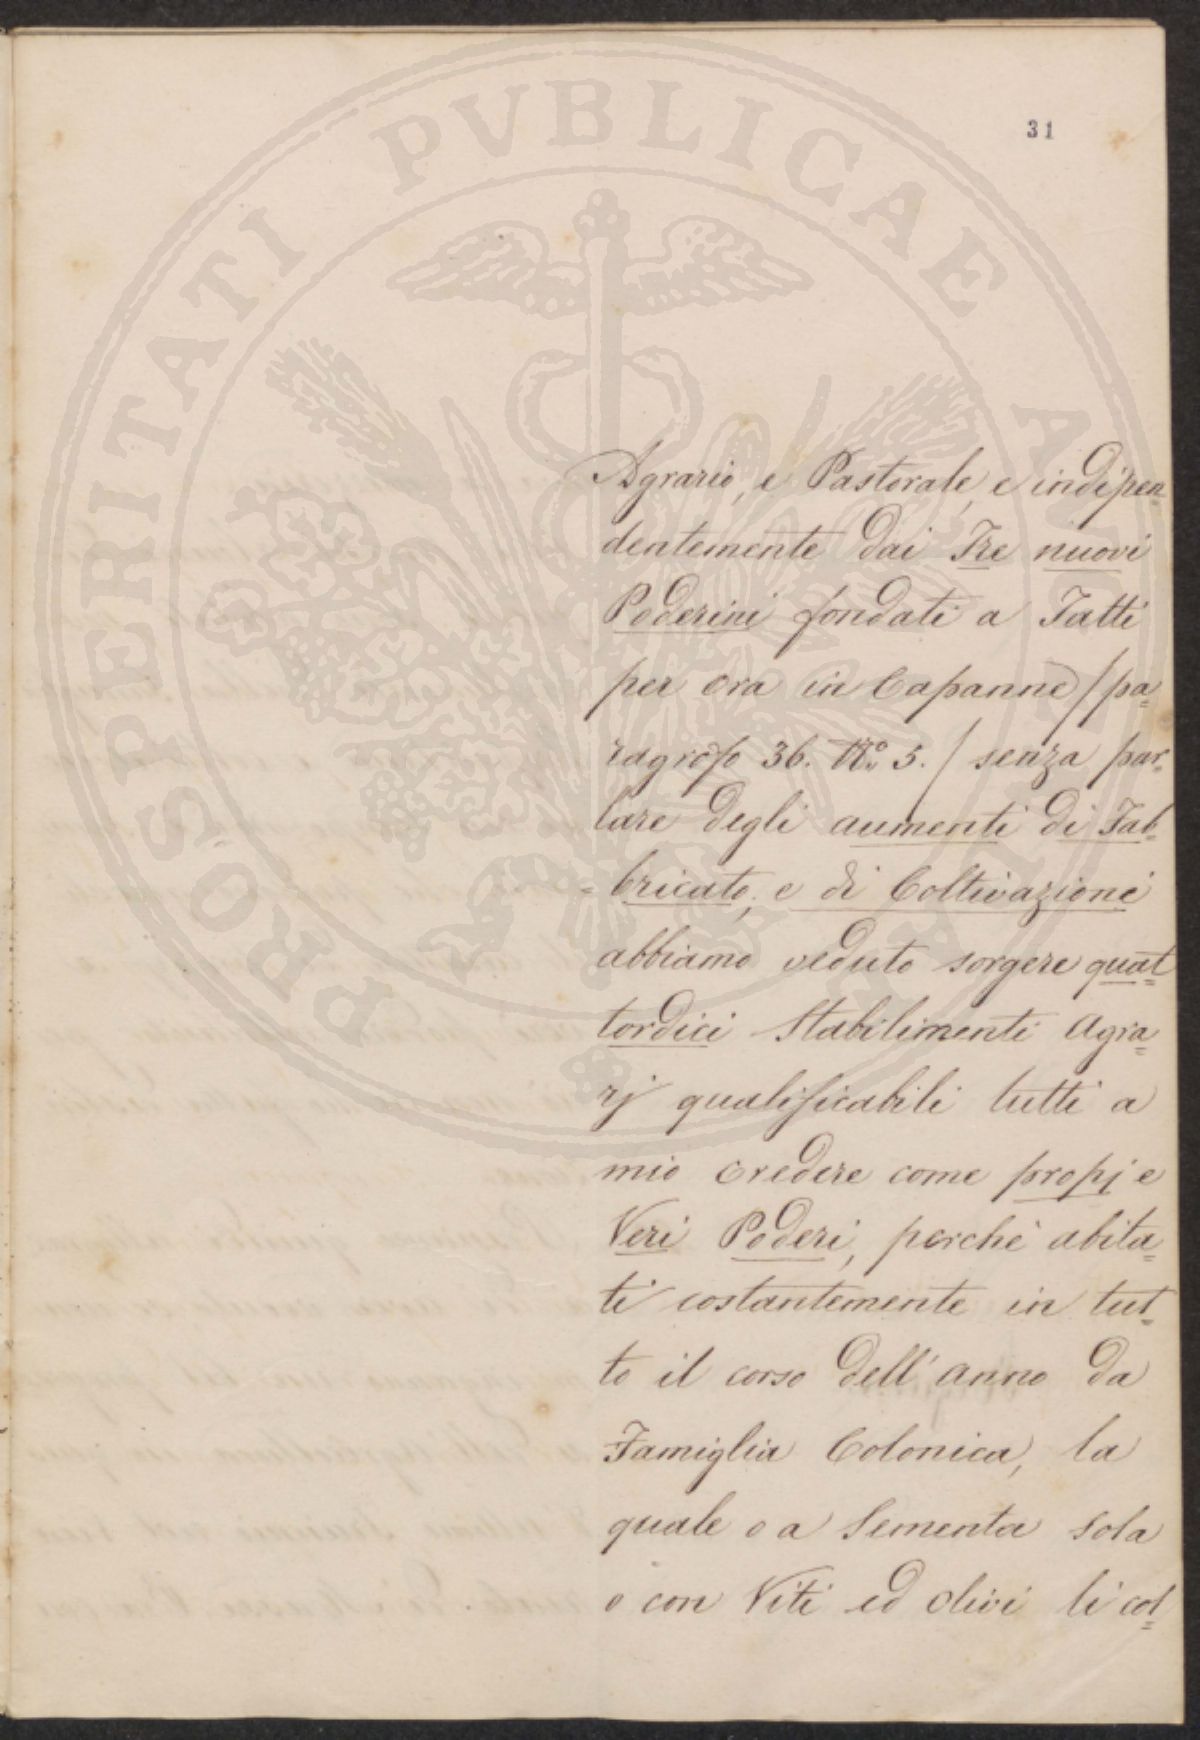 31
PROSPERITATI PVBLICAE AVGENDAE
Agrario, e Pastorale, e indipen=
dentemente dai Tre nuovi
Poderini fondati a Tatti
per ora in Capanne / pa=
ragrafo 36. No. 5. / senza par=
lare degli aumenti di Fab=
=bricato, e di Coltivazione
abbiamo veduto sorgere quat=
tordici Stabilimenti Agra=
rj qualificabili tutti a
mio credere come propj e
Veri Poderi, perchè abita=
ti costantemente in tut=
to il corso dell'anno da
Famiglia Colonica, la
quale o a Sementa sola
o con Viti ed olivi li col=